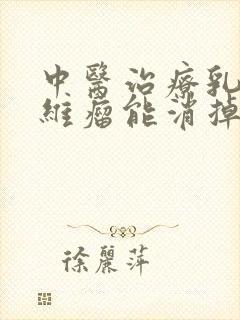 中醫治療乳
維瘤能消掉
徐麗萍